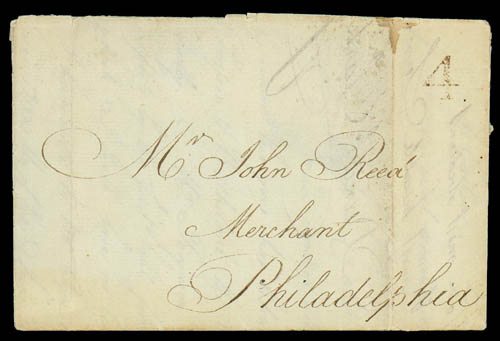 4
Mr John Reed
Merchant
Philadelphia